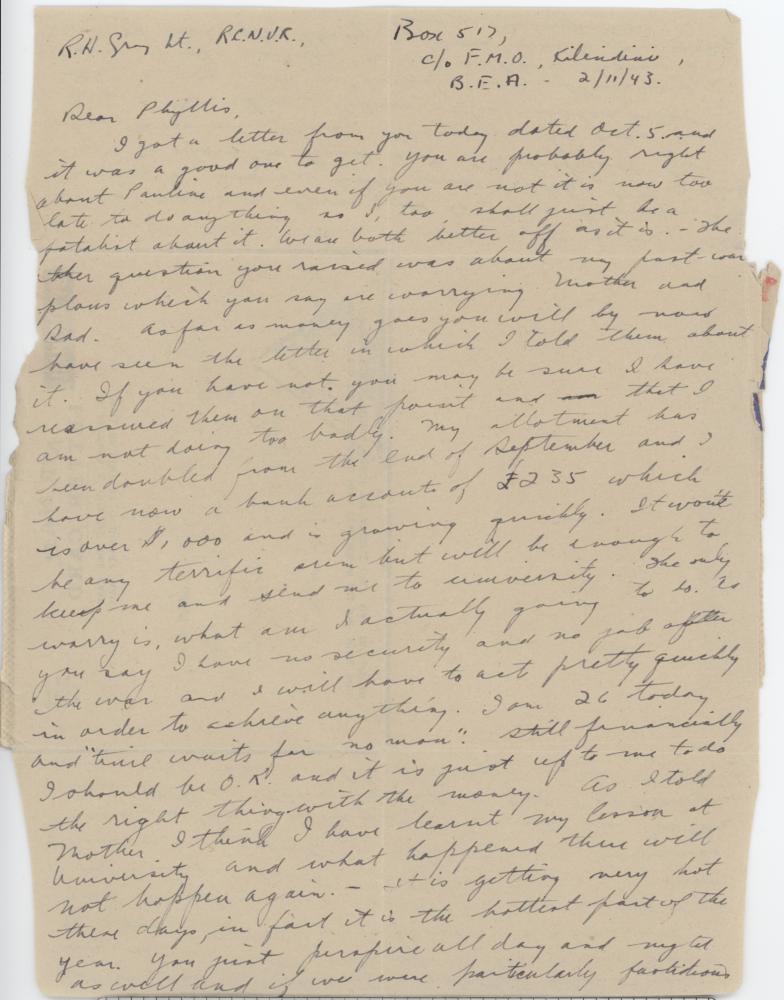 R.H. Gray Lt., R.C.N.V.R.,
Box 517,
c/o F.M.O., Kilindini,
B.E.A. - 2/11/43.
Dear Phyllis,
I got a letter from you today dated Oct. 5 and
it was a good one to get. You are probably right
about Pauline and even if you are not it is now too
late to do anything so I, too, shall just be a
fatalist about it. We are both better off as it is. - The
other question you raised was about my post-war
plans which you say are worrying Mother and
Dad. As far as money goes you will by now
have seen the letter in which I told them about
it. If you have not, you may be sure I have
reassured them on that point and that I
am not doing too badly. My allotment has
been doubled from the end of September and I
have now a bank account of £235 which
is over $1,000 and is growing quickly. It won't
be any terrific sum but will be enough to
keep me and send me to university. The only
worry is, what am I actually going to do. As
you say I have no security and no job after
the war and I will have to act pretty quickly
in order to achieve anything. I am 26 today
and "time waits for no man". Still financially
I should be O.K. and it is just up to me to do
the right thing with the money. As I told
Mother I think I have learnt my lesson at
University and what happened there will
not happen again. - It is getting very hot
these days, in fact it is the hottest part of the
year. You just perspire all day and night
as well and if we were particularly fastidious